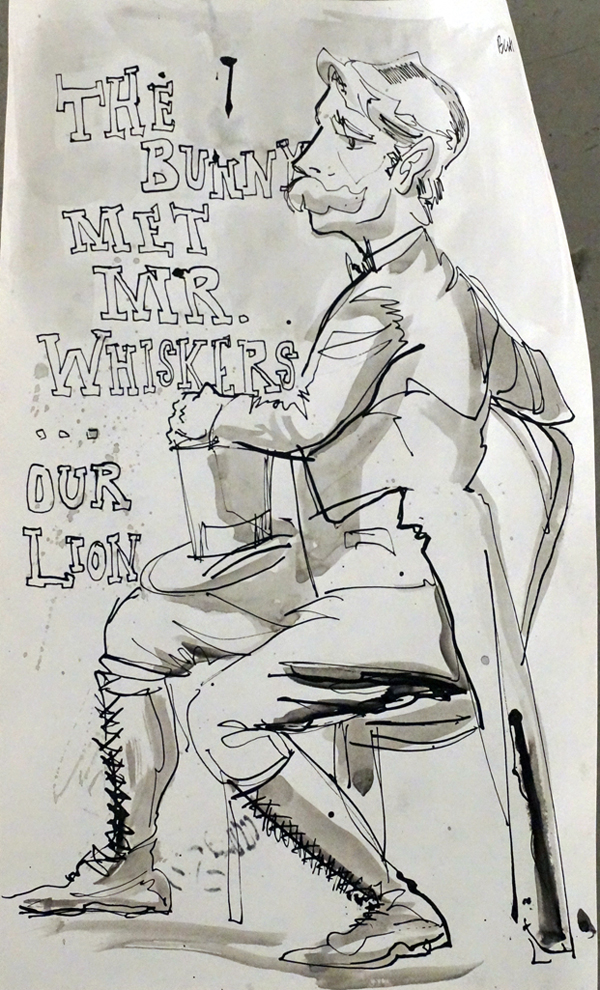 THE
BUNNY
MET
MR.
WHISKERS
...
OUR
LION